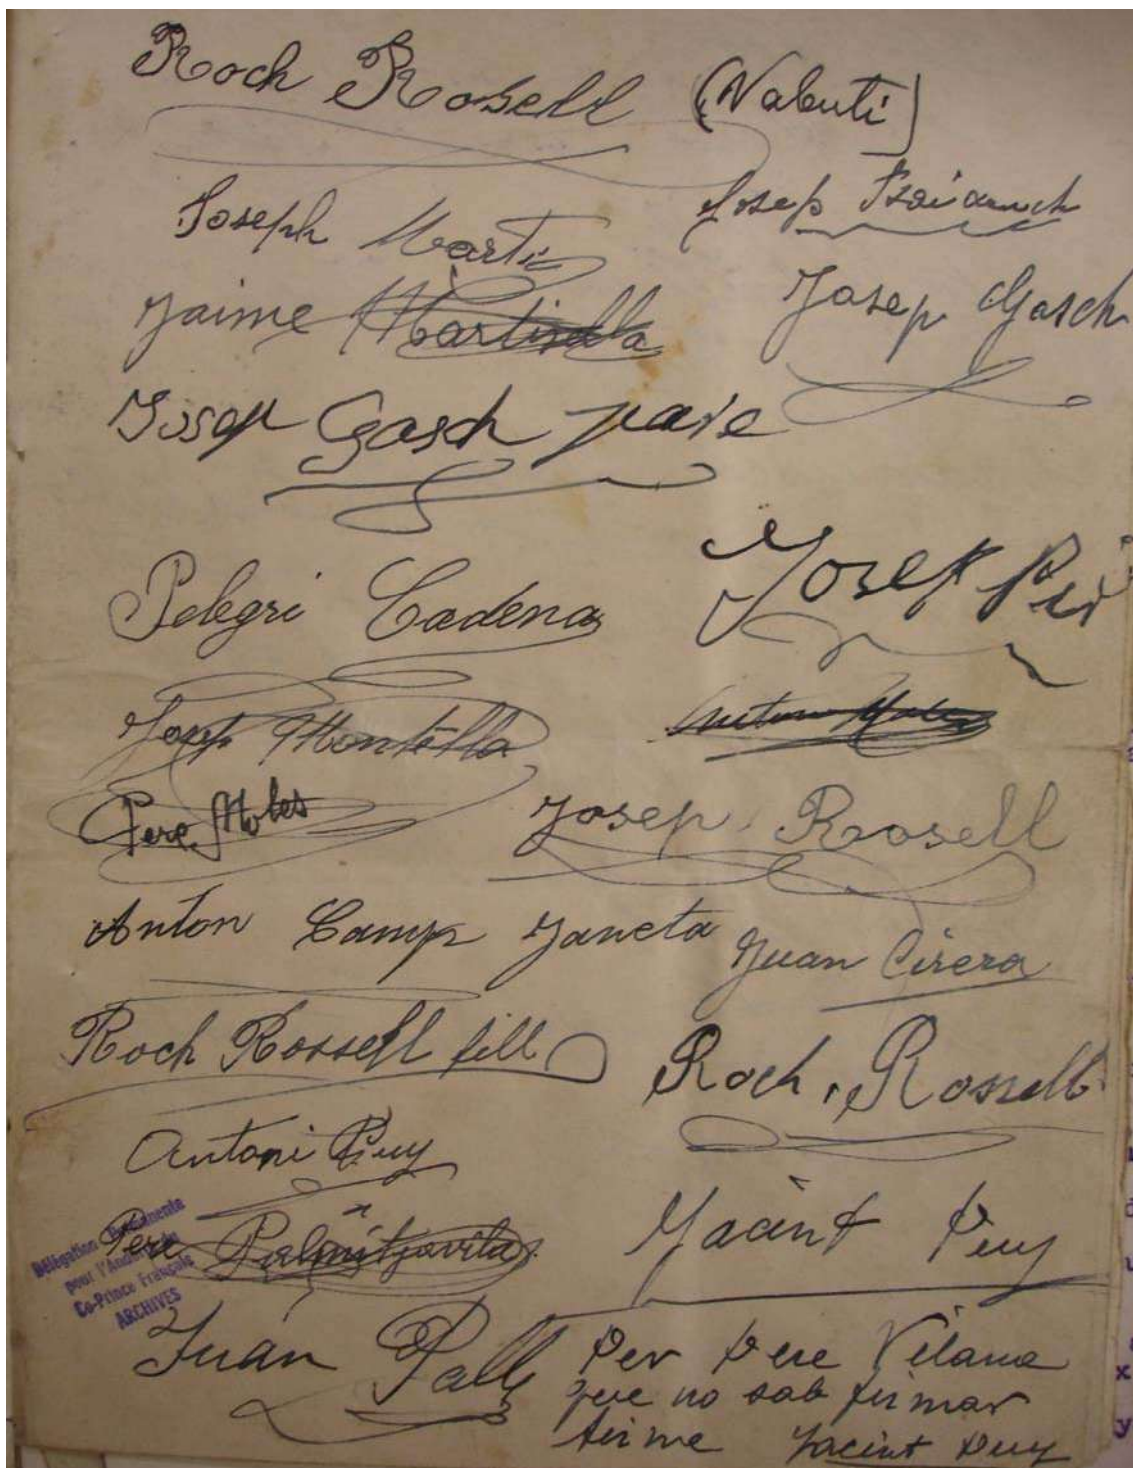 Roch Rosell (Nabuti)
Joseph Marti
Josep
Jaime Martisella
Josep Gasch
Josep Gasch pare
Pelegri Cadena
Josep Pui
Josep Montella
Pere Moles
Josep Rosell
Anton Camp Janeta
Juan Cirera
Roch Rossell fill
Roch, Rossell
Antoni Puy
Pere Palmitjavila
Jacint Puy
Délégation Permanente
pour l'Andorre du
Co-Prince Français
ARCHIVES
Juan Pall
Per Pere Vilana
que no sab firmar
firme Jacint Puy
x
y